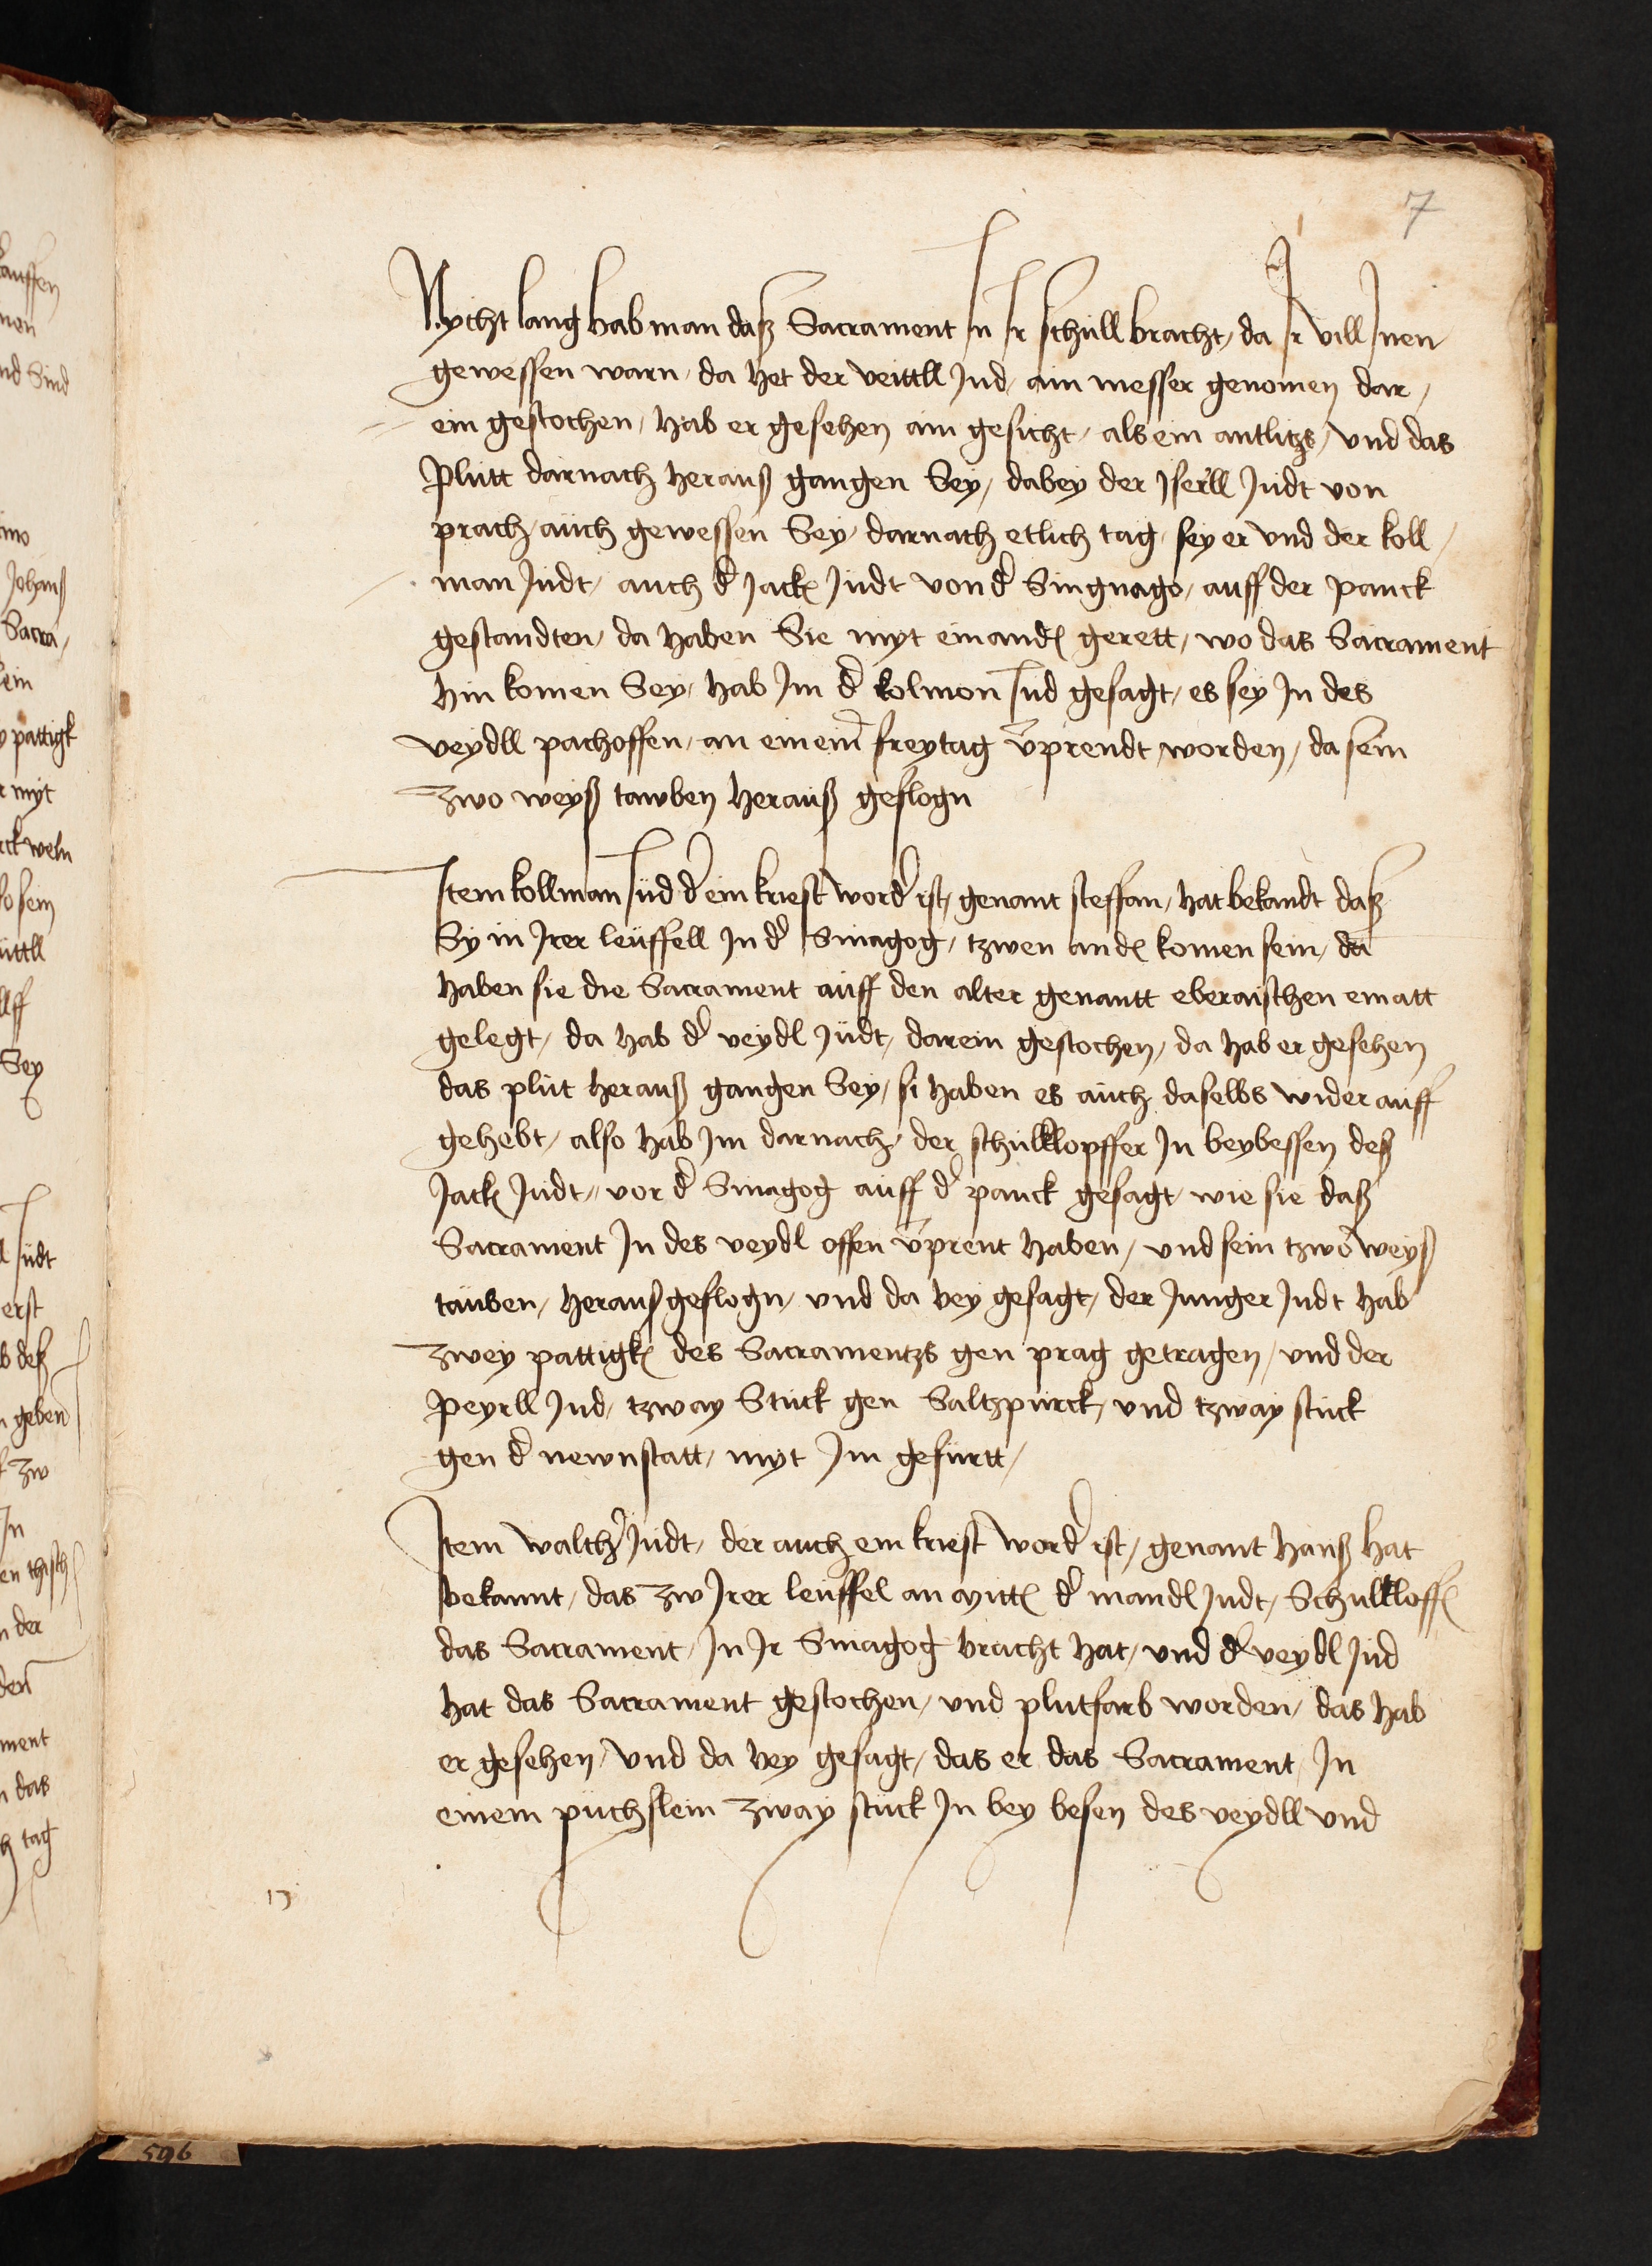 7
Nycht lang hab man daß Sacrament Jn Jr schull bracht, da Jr vill Jnen
gewessen warn, da het der veittll Jud, ain messer genomen dar,
ein gestochen, hab er gesehen ain gesicht, als ein antlitzs, vnd das
Plutt darnach herauß gangen Sey, dabey der Jserll Judt von
prach, auch gewessen Sey, darnach etlich tag, sey er vnd der koll,
man Judt, auch d' Jack Judt von d' Singnago, auff der panck
gestandten, da haben Sie myt einand gerett, wo das Sacrament
hin komen Sey, hab Jm d' kolmon Jud gesagt, es sey Jn des
veydll pachoffen, an einem freytag v'prendt worden, da sein
zwo weyß tawben herauß geflogn
Jtem kollman Jud d' ein kriest word' ist, genant steffan, hat bekandt daß
Sy in Jrer leuffell Jn d' Sinagog, tzwen and komen sein, da
haben sie die Sacrament auff den alter genantt eberaischen ematt
gelegt, da hab d' veydl Judt, darein gestochen, da hab er gesehen
das plut herauß gangen Sey, si haben es auch daselbs wider auff
gehebt, also hab Jm darnach, der schulklopffer Jn beybessen deß
Jack Judt, vor d' Sinagog auff d' panck gesagt, wie sie daß
Sacrament Jn des veydl offen v'prent haben, vnd sein tzwo weyß
tauben, herauß geflogn, vnd da bey gesagt, der Junger Judt hab
zwey pattigk des Sacramentzs gen prag getragen, vnd der
Peyrll Jud, tzway Stuck gen Saltzpurck, vnd tzway stuck
gen d' newnstatt, myt Jm gefurtt,
Jtem walth' Judt, der auch ein kriest word' ist, genant Hanß hat
bekannt, das zw Jrer leuffel an mitt d' mandl Judt, Schulkloff
das Sacrament, Jn Jr Sinagog bracht hat, vnd d' veydl Jud
hat das Sacrament gestochen, vnd plutfarb worden, das hab
er gesehen, vnd da bey gesagt, das er das Sacrament, Jn
einem puchslein zway stuck Jn bey besen des veydll vnd
596